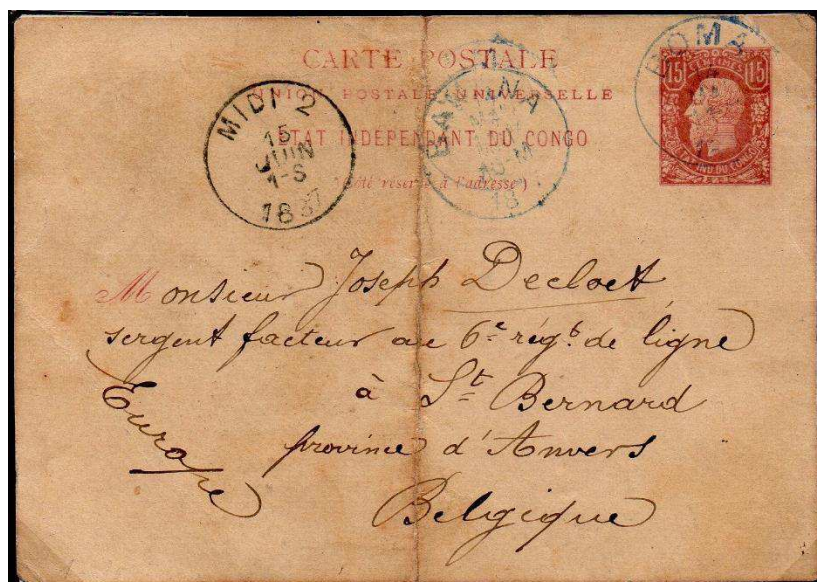 CARTE POSTALE
UNION POSTALE UNIVERSELLE
ÉTAT INDÉPENDANT DU CONGO
(Côté réservé à l'adresse)
MIDI 2
15
JUIN
1-S
1887
BANANA
BOMA
15 CENTIMES 15
Monsieur Joseph Decloet
sergent facteur au 6e régt. de ligne
à St Bernard
province d'Anvers
Belgique
Europe